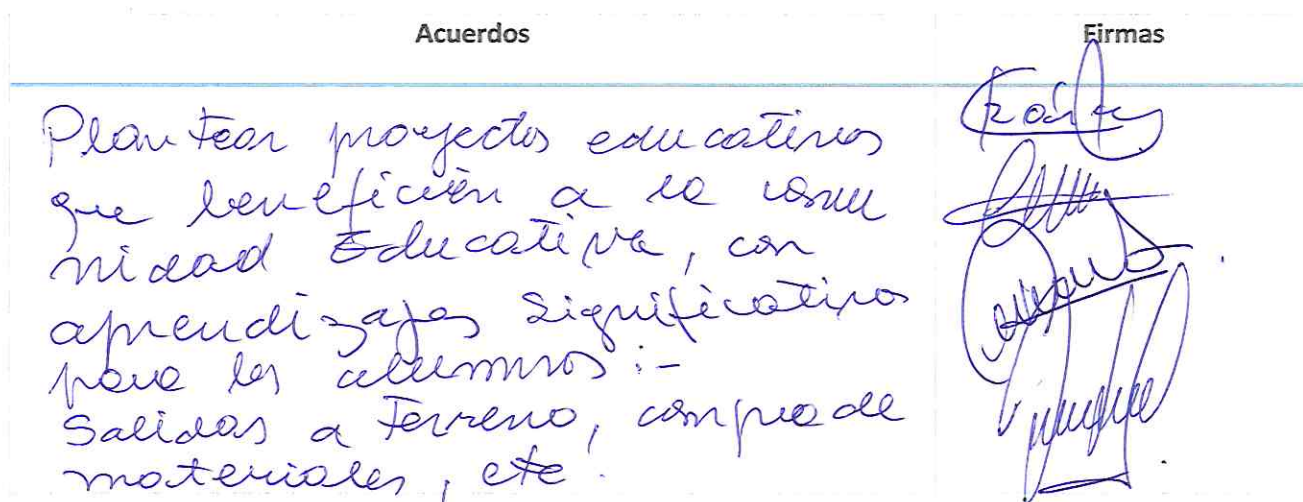 Acuerdos Firmas
Plantear proyectos educativos
que beneficién a la comu
nidad Educativa, con
aprendizajes significativos
para los alumnos:-
Salidas a Terreno, compra de
materiales, etc.